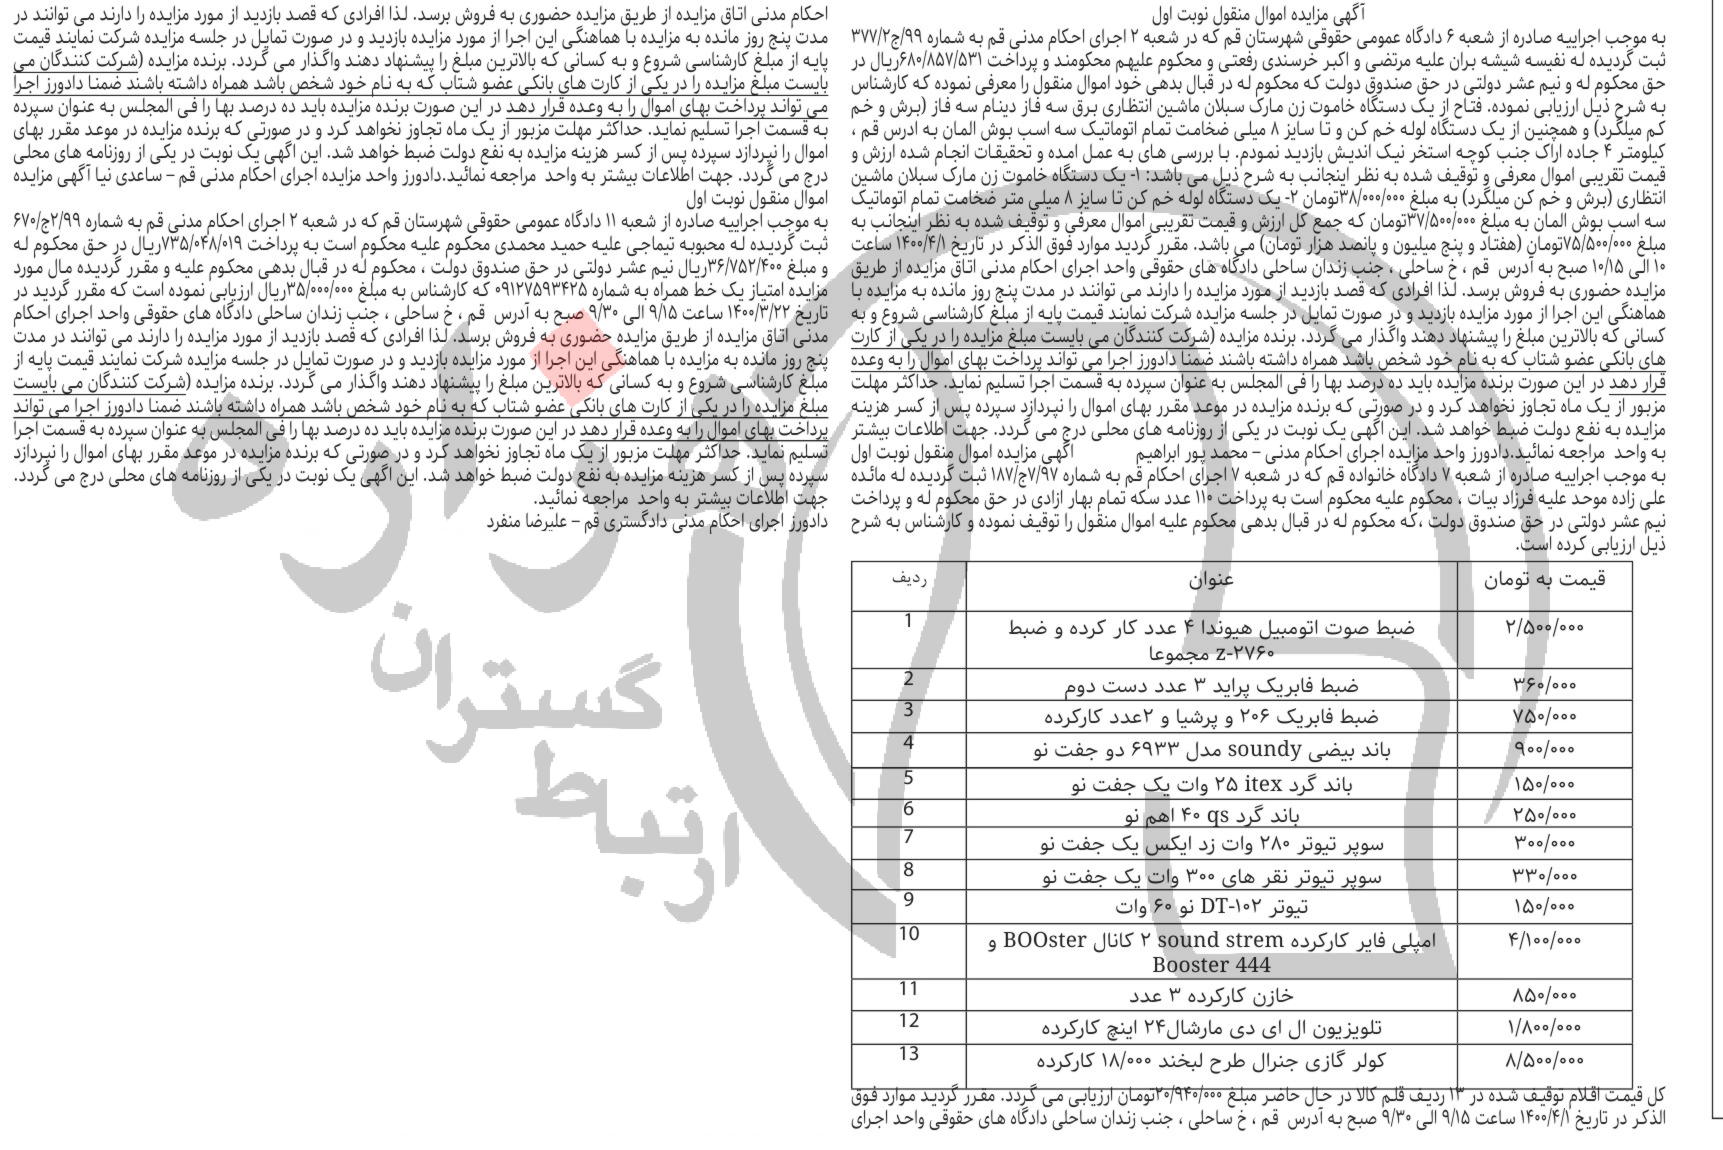 آگهی مزایده اموال منقول نوبت اول
به موجب اجراییه صادره از شعبه ۶ دادگاه عمومی حقوقی شهرستان قم که در شعبه ۲ اجرای احکام مدنی قم به شماره ۹۹/ج۳۷۷/۲
ثبت گردیده له نفیسه شیشه بران علیه مرتضی و اکبر خرسندی رفعتی و محکوم علیهم محکومند و پرداخت ۶۸۰/۸۵۷/۵۳۱ریال در
حق محکوم له و نیم عشر دولتی در حق صندوق دولت که محکوم له در قبال بدهی خود اموال منقول را معرفی نموده که کارشناس
به شرح ذیل ارزیابی نموده. فتاح از یک دستگاه خاموت زن مارک سبلان ماشین انتظاری برق سه فاز دینام سه فاز (برش و خم
کم میلگرد) و همچنین از یک دستگاه لوله خم کن و تا سایز ۸ میلی ضخامت تمام اتوماتیک سه اسب بوش المان به ادرس قم ،
کیلومتر ۴ جاده اراک جنب کوچه استخر نیک اندیش بازدید نمودم. با بررسی های به عمل امده و تحقیقات انجام شده ارزش و
قیمت تقریبی اموال معرفی و توقیف شده به نظر اینجانب به شرح ذیل می باشد: ۱- یک دستگاه خاموت زن مارک سبلان ماشین
انتظاری (برش و خم کن میلگرد) به مبلغ ۳۸/۰۰۰/۰۰۰تومان ۲- یک دستگاه لوله خم کن تا سایز ۸ میلی متر ضخامت تمام اتوماتیک
سه اسب بوش المان به مبلغ ۳۷/۵۰۰/۰۰۰تومان که جمع کل ارزش و قیمت تقریبی اموال معرفی و توقیف شده به نظر اینجانب به
مبلغ ۷۵/۵۰۰/۰۰۰تومان (هفتاد و پنج میلیون و پانصد هزار تومان) می باشد. مقرر گردید موارد فوق الذکر در تاریخ ۱۴۰۰/۴/۱ ساعت
۱۰ الی ۱۰/۱۵ صبح به آدرس قم ، خ ساحلی ، جنب زندان ساحلی دادگاه های حقوقی واحد اجرای احکام مدنی اتاق مزایده از طریق
مزایده حضوری به فروش برسد. لذا افرادی که قصد بازدید از مورد مزایده را دارند می توانند در مدت پنج روز مانده به مزایده با
هماهنگی این اجرا از مورد مزایده بازدید و در صورت تمایل در جلسه مزایده شرکت نمایند قیمت پایه از مبلغ کارشناسی شروع و به
کسانی که بالاترین مبلغ را پیشنهاد دهند واگذار می گردد. برنده مزایده (شرکت کنندگان می بایست مبلغ مزایده را در یکی از کارت
های بانکی عضو شتاب که به نام خود شخص باشد همراه داشته باشند ضمنا دادورز اجرا می تواند پرداخت بهای اموال را به وعده
قرار دهد در این صورت برنده مزایده باید ده درصد بها را فی المجلس به عنوان سپرده به قسمت اجرا تسلیم نماید. حداکثر مهلت
مزبور از یک ماه تجاوز نخواهد کرد و در صورتی که برنده مزایده در موعد مقرر بهای اموال را نپردازد سپرده پس از کسر هزینه
مزایده به نفع دولت ضبط خواهد شد. این آگهی یک نوبت در یکی از روزنامه های محلی درج می گردد. جهت اطلاعات بیشتر
به واحد مراجعه نمائید.دادورز واحد مزایده اجرای احکام مدنی – محمد پور ابراهیم آگهی مزایده اموال منقول نوبت اول
به موجب اجراییه صادره از شعبه ۷ دادگاه خانواده قم که در شعبه ۷ اجرای احکام قم به شماره ۷/۹۷ج/۱۸۷ ثبت گردیده له مائده
علی زاده موحد علیه فرزاد بیات ، محکوم علیه محکوم است به پرداخت ۱۱۰ عدد سکه تمام بهار ازادی در حق محکوم له و پرداخت
نیم عشر دولتی در حق صندوق دولت ،که محکوم له در قبال بدهی محکوم علیه اموال منقول را توقیف نموده و کارشناس به شرح
ذیل ارزیابی کرده است.
قیمت به تومان عنوان ردیف
۲/۵۰۰/۰۰۰ ضبط صوت اتومبیل هیوندا ۴ عدد کار کرده و ضبط 1
z-۲۷۶۰ مجموعا
۳۶۰/۰۰۰ ضبط فابریک پراید ۳ عدد دست دوم 2
۷۵۰/۰۰۰ ضبط فابریک ۲۰۶ و پرشیا و ۲عدد کارکرده 3
۹۰۰/۰۰۰ باند بیضی soundy مدل ۶۹۳۳ دو جفت نو 4
۱۵۰/۰۰۰ باند گرد itex ۲۵ وات یک جفت نو 5
۲۵۰/۰۰۰ باند گرد qs ۴۰ اهم نو 6
۳۰۰/۰۰۰ سوپر تیوتر ۲۸۰ وات زد ایکس یک جفت نو 7
۳۳۰/۰۰۰ سوپر تیوتر نقر های ۳۰۰ وات یک جفت نو 8
۱۵۰/۰۰۰ تیوتر DT-۱۰۲ نو ۶۰ وات 9
۴/۱۰۰/۰۰۰ امپلی فایر کارکرده sound strem ۲ کانال BOOster و 10
Booster 444
۸۵۰/۰۰۰ خازن کارکرده ۳ عدد 11
۱/۸۰۰/۰۰۰ تلویزیون ال ای دی مارشال۲۴ اینچ کارکرده 12
۸/۵۰۰/۰۰۰ کولر گازی جنرال طرح لبخند ۱۸/۰۰۰ کارکرده 13
کل قیمت اقلام توقیف شده در ۱۳ ردیف قلم کالا در حال حاضر مبلغ ۲۰/۹۴۰/۰۰۰تومان ارزیابی می گردد. مقرر گردید موارد فوق
الذکر در تاریخ ۱۴۰۰/۴/۱ ساعت ۹/۱۵ الی ۹/۳۰ صبح به آدرس قم ، خ ساحلی ، جنب زندان ساحلی دادگاه های حقوقی واحد اجرای
احکام مدنی اتاق مزایده از طریق مزایده حضوری به فروش برسد. لذا افرادی که قصد بازدید از مورد مزایده را دارند می توانند در
مدت پنج روز مانده به مزایده با هماهنگی این اجرا از مورد مزایده بازدید و در صورت تمایل در جلسه مزایده شرکت نمایند قیمت
پایه از مبلغ کارشناسی شروع و به کسانی که بالاترین مبلغ را پیشنهاد دهند واگذار می گردد. برنده مزایده (شرکت کنندگان می
بایست مبلغ مزایده را در یکی از کارت های بانکی عضو شتاب که به نام خود شخص باشد همراه داشته باشند ضمنا دادورز اجرا
می تواند پرداخت بهای اموال را به وعده قرار دهد در این صورت برنده مزایده باید ده درصد بها را فی المجلس به عنوان سپرده
به قسمت اجرا تسلیم نماید. حداکثر مهلت مزبور از یک ماه تجاوز نخواهد کرد و در صورتی که برنده مزایده در موعد مقرر بهای
اموال را نپردازد سپرده پس از کسر هزینه مزایده به نفع دولت ضبط خواهد شد. این اگهی یک نوبت در یکی از روزنامه های محلی
درج می گردد. جهت اطلاعات بیشتر به واحد مراجعه نمائید.دادورز واحد مزایده اجرای احکام مدنی قم – ساعدی نیا آگهی مزایده
اموال منقول نوبت اول
به موجب اجراییه صادره از شعبه ۱۱ دادگاه عمومی حقوقی شهرستان قم که در شعبه ۲ اجرای احکام مدنی قم به شماره ۲/۹۹ج/۶۷۰
ثبت گردیده له محبوبه تیماجی علیه حمید محمدی محکوم علیه محکوم است به پرداخت ۷۳۵/۰۴۸/۰۱۹ریال در حق محکوم له
و مبلغ ۳۶/۷۵۲/۴۰۰ریال نیم عشر دولتی در حق صندوق دولت ، محکوم له در قبال بدهی محکوم علیه و مقرر گردیده مال مورد
مزایده امتیاز یک خط همراه به شماره ۰۹۱۲۷۵۹۳۴۲۵ که کارشناس به مبلغ ۳۵/۰۰۰/۰۰۰ریال ارزیابی نموده است که مقرر گردید در
تاریخ ۱۴۰۰/۳/۲۲ ساعت ۹/۱۵ الی ۹/۳۰ صبح به آدرس قم ، خ ساحلی ، جنب زندان ساحلی دادگاه های حقوقی واحد اجرای احکام
مدنی اتاق مزایده از طریق مزایده حضوری به فروش برسد. لذا افرادی که قصد بازدید از مورد مزایده را دارند می توانند در مدت
پنج روز مانده به مزایده با هماهنگی این اجرا از مورد مزایده بازدید و در صورت تمایل در جلسه مزایده شرکت نمایند قیمت پایه از
مبلغ کارشناسی شروع و به کسانی که بالاترین مبلغ را پیشنهاد دهند واگذار می گردد. برنده مزایده (شرکت کنندگان می بایست
مبلغ مزایده را در یکی از کارت های بانکی عضو شتاب که به نام خود شخص باشد همراه داشته باشند ضمنا دادورز اجرا می تواند
پرداخت بهای اموال را به وعده قرار دهد در این صورت برنده مزایده باید ده درصد بها را فی المجلس به عنوان سپرده به قسمت اجرا
تسلیم نماید. حداکثر مهلت مزبور از یک ماه تجاوز نخواهد کرد و در صورتی که برنده مزایده در موعد مقرر بهای اموال را نپردازد
سپرده پس از کسر هزینه مزایده به نفع دولت ضبط خواهد شد. این آگهی یک نوبت در یکی از روزنامه های محلی درج می گردد.
جهت اطلاعات بیشتر به واحد مراجعه نمائید.
دادورز اجرای احکام مدنی دادگستری قم – علیرضا منفرد
هزاره
گستران
ارتباط